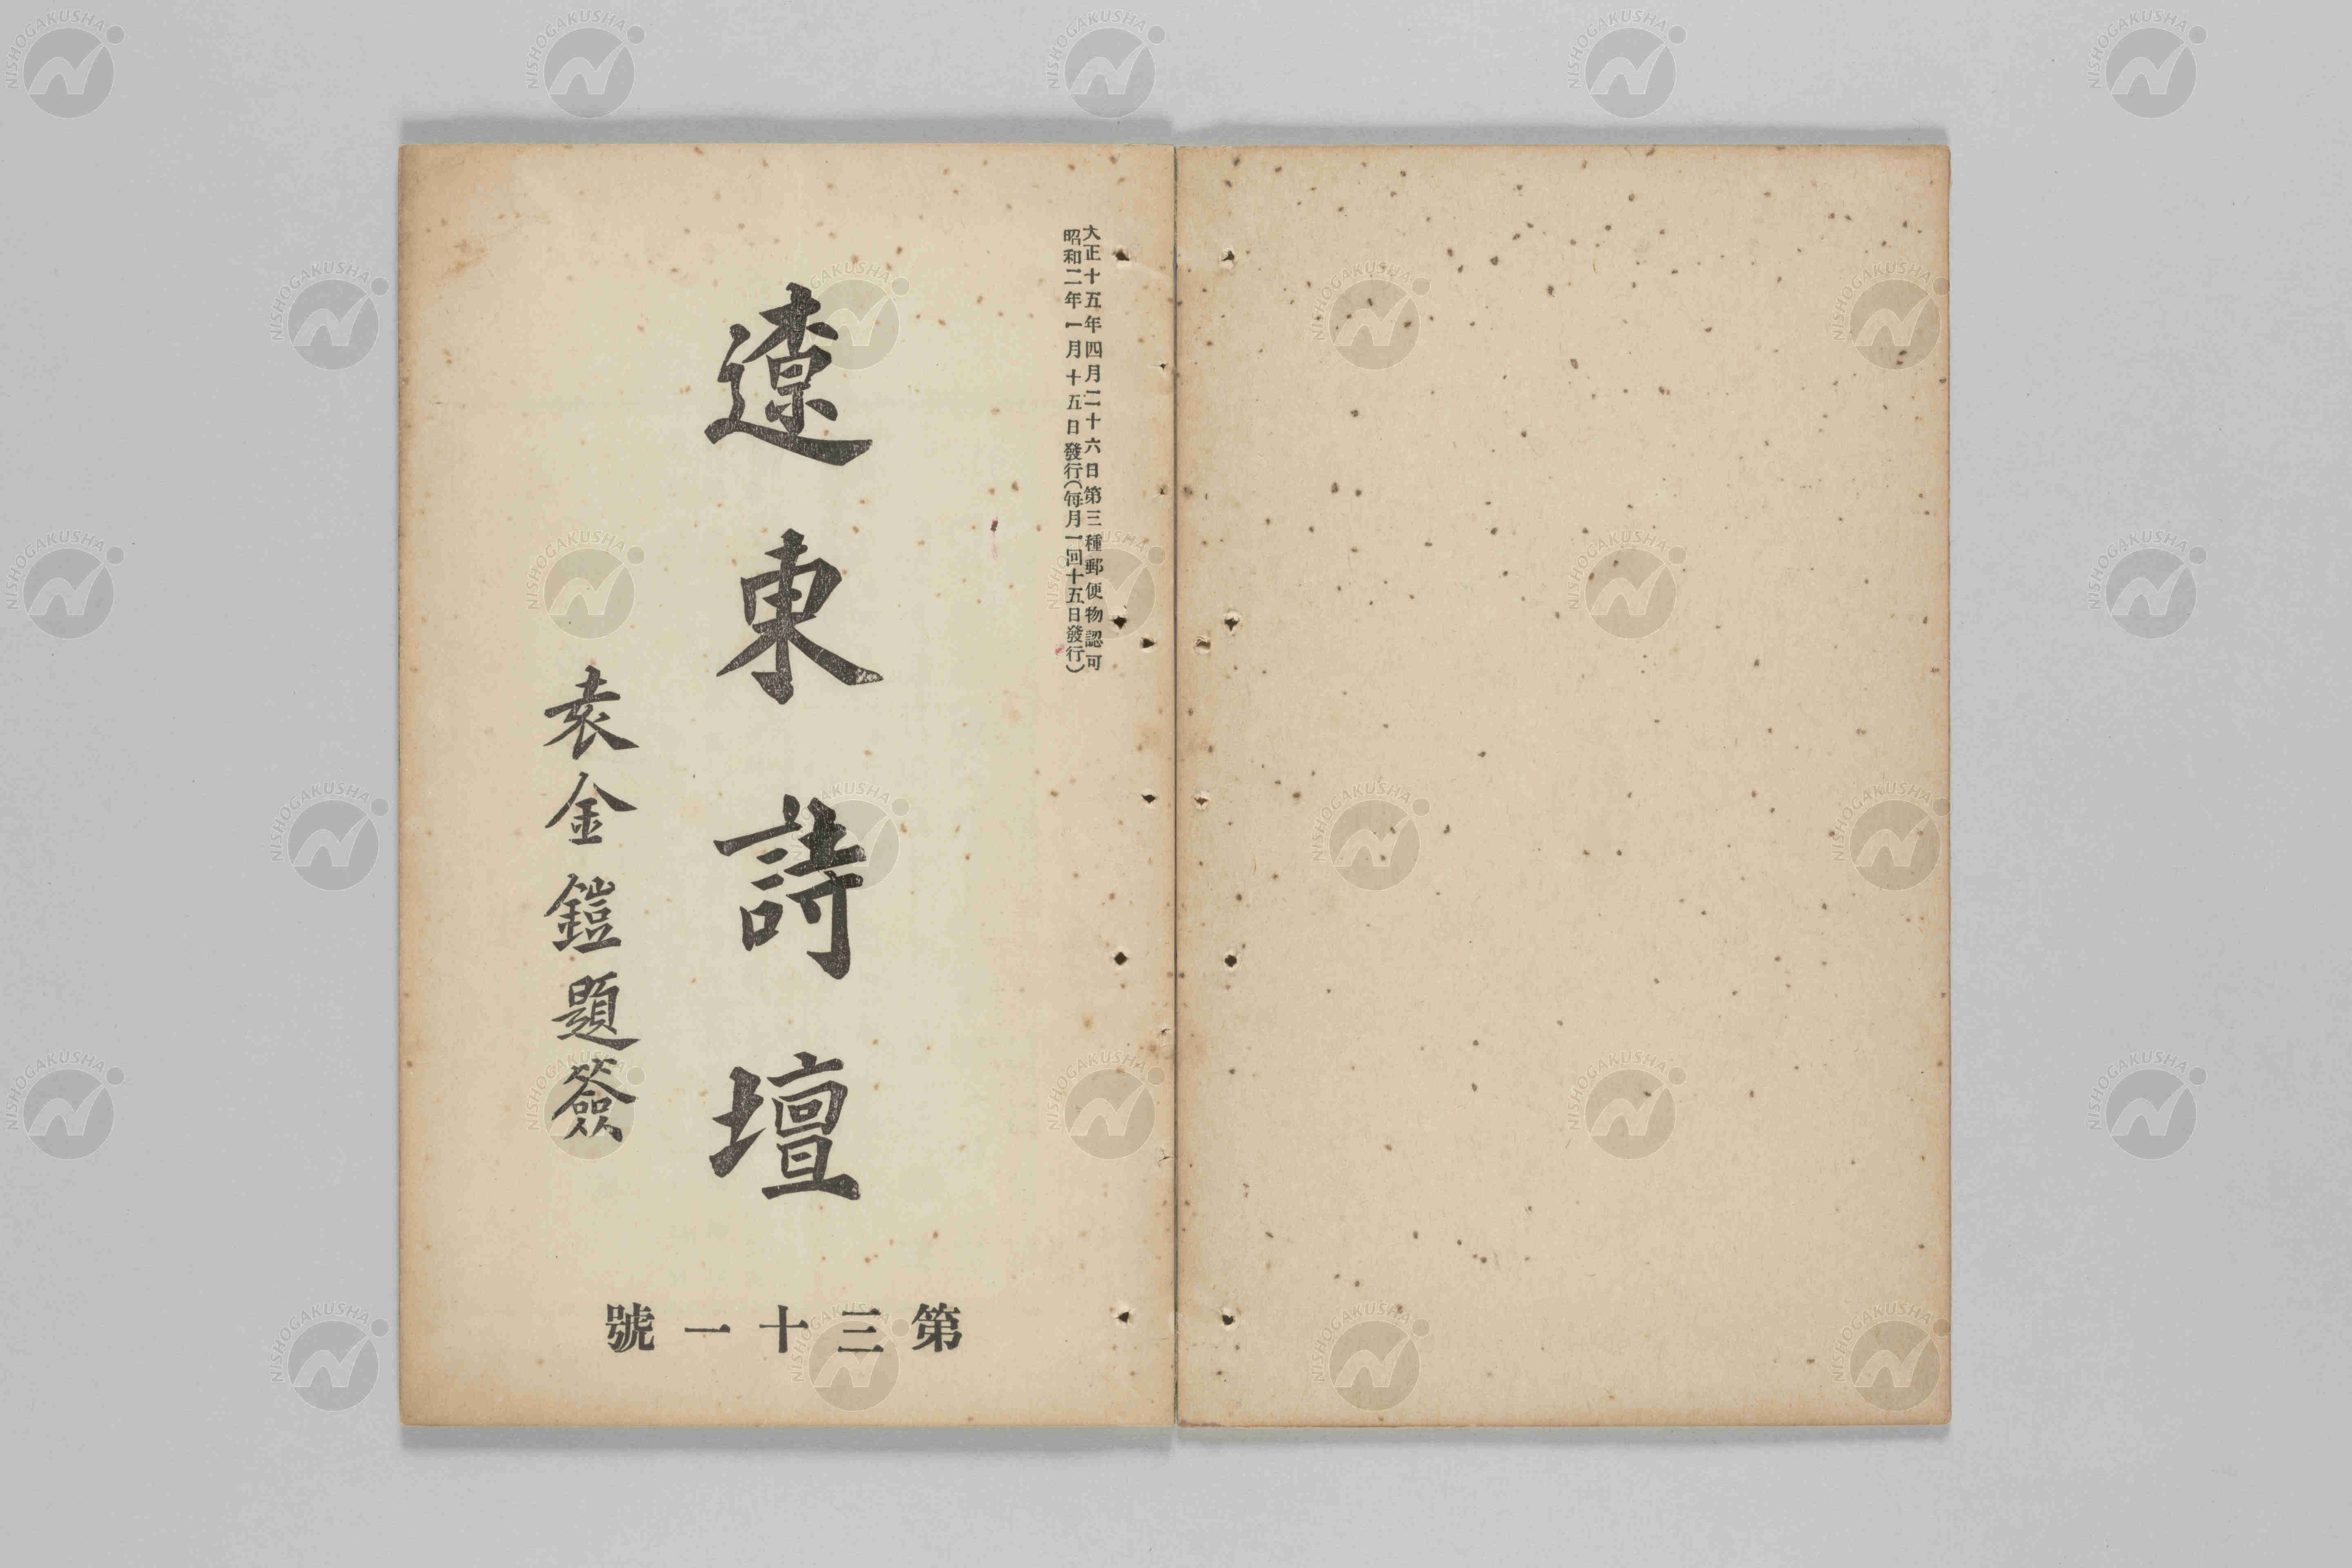 大正十五年四月二十六日第三種郵便物認可
昭和二年一月十五日發行(每月一回十五日發行)
遼東詩壇
袁金鎧題簽
第三十一號
NISHOGAKUSHA